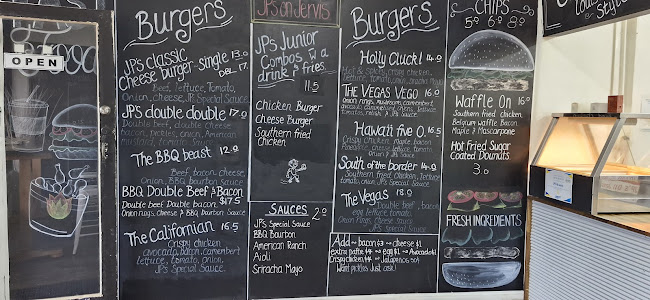 OPEN
Burgers
JP's classic
Cheese burger - single 13.0
DBL 17.
Beef, lettuce, Tomato,
Onion, cheese, JP's Special Sauce.
JP's double double 17.0
Double beef, double cheese
bacon, pickles, onion, American
mustard, tomato sauce
The BBQ beast 12.0
Beef, bacon, cheese,
Onion, BBQ bourbon sauce
BBQ Double Beef & Bacon
Double beef, Double bacon, $17.5
Onion rings, cheese & BBQ bourbon Sauce
The Californian 16.5
Crispy chicken
avocado, bacon, camembert
lettuce, tomato, onion,
JP's Special Sauce.
JP's on Jervis
JP's Junior
Combos, w a
drink & fries.
11.5
Chicken Burger
Cheese Burger
Southern fried
Chicken
SAUCES 2.0
JP's Special Sauce
BBQ Bourbon
American Ranch
Aioli
Sriracha Mayo
Burgers
Holly Cluck! 14.0
Hot & spicy crispy chicken,
lettuce, tomato, onion,
THE VEGAS VEGO 16.0
Onion rings, mushroom, camembert,
Hawaii five O. 16.5
Crispy chicken, maple, bacon,
Pineapple, cheese, lettuce, tomato,
South of the border 14.0
Southern fried chicken, lettuce
tomato, onion, JP's Special Sauce.
The Vegas 18.0
Double beef, bacon
egg, lettuce, tomato,
Onion Rings, cheese, Sauce
JP's Special
Add ~ bacon $3 ~ cheese $1
extra pattie $4 ~ egg $1 ~ Avocado $2
Crispy chicken $4 ~ Jalapenos 50¢
Want pickles Just ask!
CHIPS
5.0 6.0 8.0
WAFFLE ON 16.0
Southern fried chicken,
Belgium waffle, Bacon
Maple & Mascarpone
HOT FRIED SUGAR
COATED DOUNUTS
3.0
FRESH INGREDIENTS